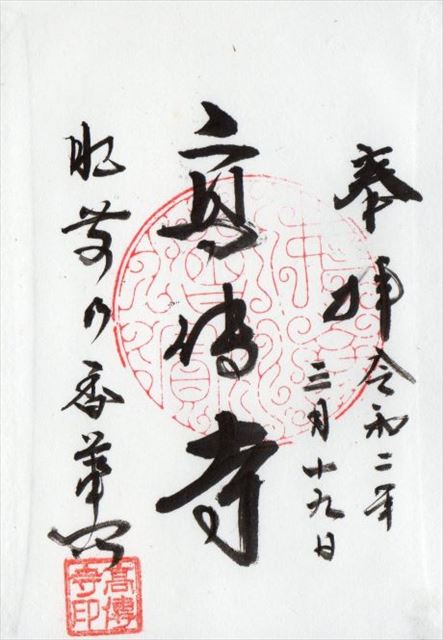 奉拝
令和二年
三月十九日
高傳寺
肥前乃香華所
高傳
寺印